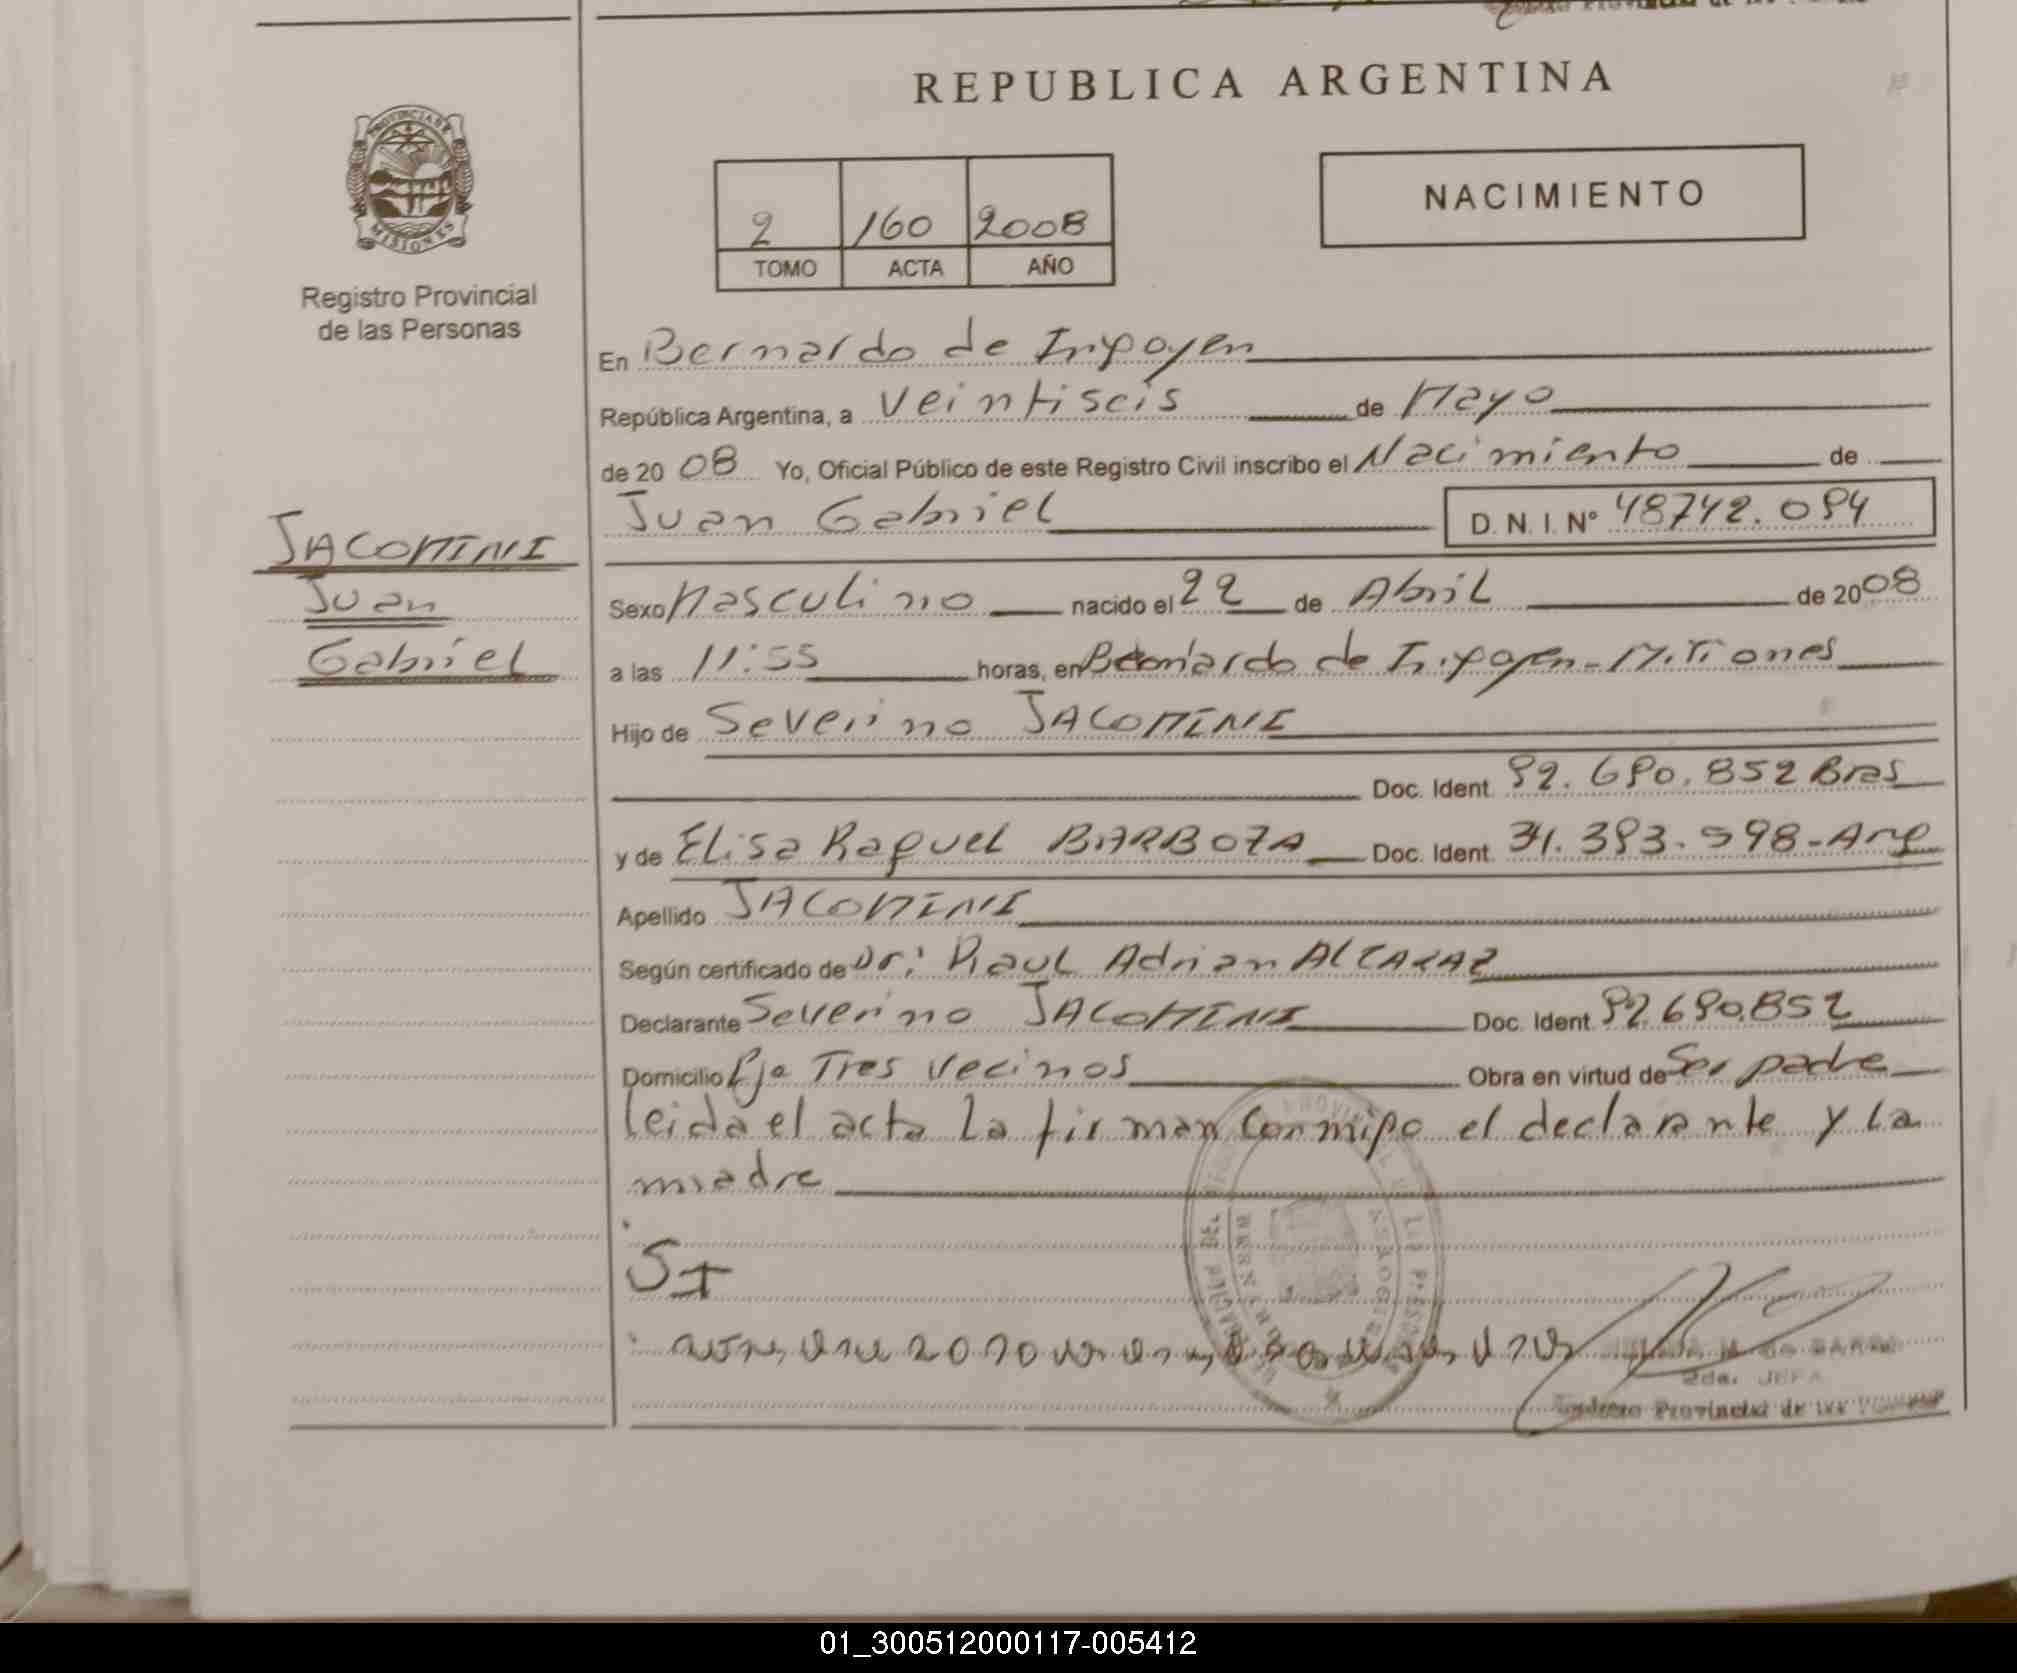 REPUBLICA ARGENTINA
PROVINCIA DE
MISIONES
Registro Provincial
de las Personas
2 160 2008
TOMO ACTA AÑO
NACIMIENTO
En Bernardo de Irigoyen
República Argentina, a veintiseis de Mayo
de 2008 Yo, Oficial Público de este Registro Civil inscribo el Nacimiento de
Juan Gabriel D. N. I. Nº 48742.094
JACOMINI
Juan
Gabriel
Sexo Masculino nacido el 22 de Abril de 2008
a las 11:55 horas, en Bernardo de Irigoyen - Misiones
Hijo de Severino JACOMINI
Doc. Ident. 92.690.852 Bras
y de Elisa Raquel BARBOZA Doc. Ident. 34.393.998 - Arg
Apellido JACOMINI
Según certificado de Dr: Raul Adrian ALCARAZ
Declarante Severino JACOMINI Doc. Ident. 92690.852
Domicilio Pje Tres Vecinos Obra en virtud de Ser padre
Leida el acta la firman conmigo el declarante y la
madre
SI
2da. JEFA
Registro Provincial de las
01_300512000117-005412